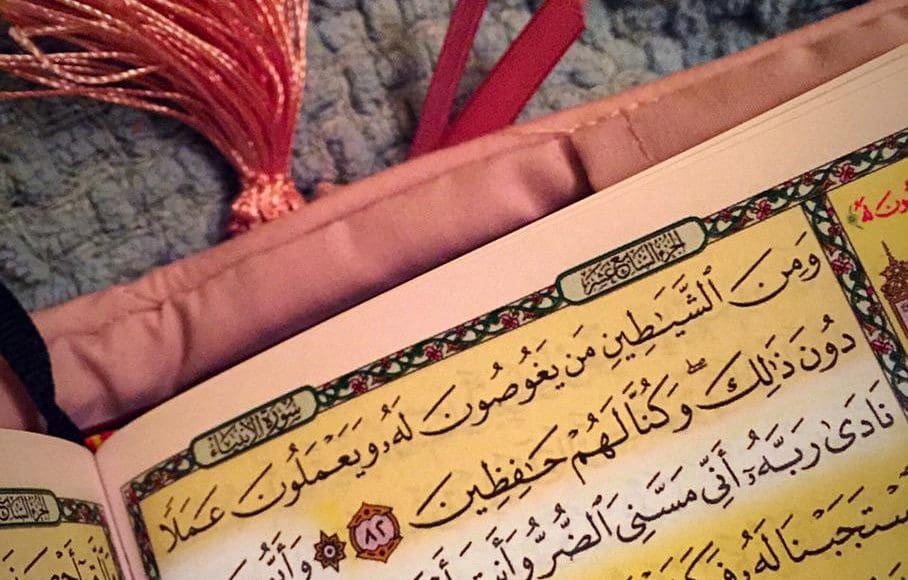 الجزء السابع عشر
سورة الأنبياء
وَمِنَ ٱلشَّيَـٰطِينِ مَن يَغُوصُونَ لَهُۥ وَيَعْمَلُونَ عَمَلًا
دُونَ ذَٰلِكَ ۖ وَكُنَّا لَهُمْ حَـٰفِظِينَ ٨٢ ۞ وَأَيُّوبَ
نَادَىٰ رَبَّهُۥٓ أَنِّى مَسَّنِىَ ٱلضُّرُّ وَأَنتَ